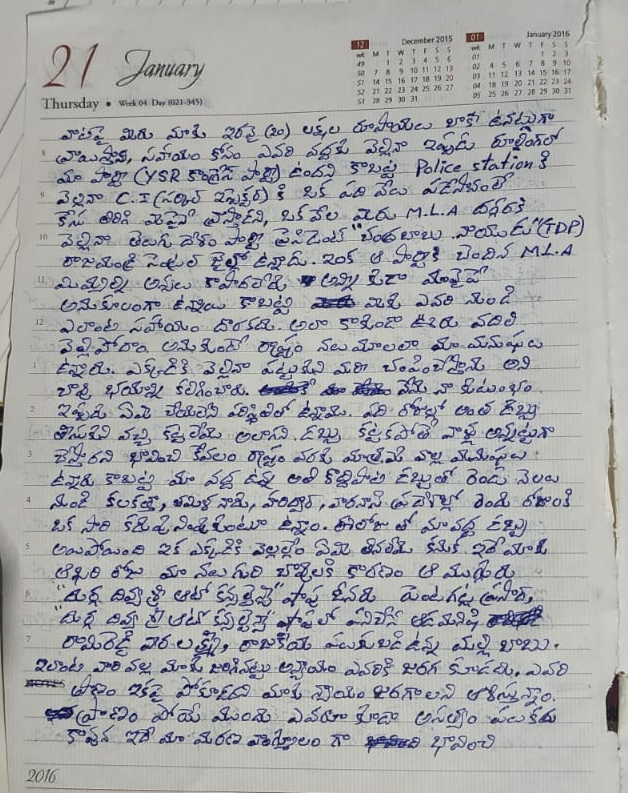 21 January
Thursday • Week 04 Day (021-345)
12 December 2015
wk M T W T F S S
49 1 2 3 4 5 6
50 7 8 9 10 11 12 13
51 14 15 16 17 18 19 20
52 21 22 23 24 25 26 27
53 28 29 30 31
01 January 2016
wk M T W T F S S
01 1 2 3
02 4 5 6 7 8 9 10
03 11 12 13 14 15 16 17
04 18 19 20 21 22 23 24
05 25 26 27 28 29 30 31
మీరు మాకు ఇరవై (20) లక్షల రూపాయలు బాకీ ఉన్నట్లుగా
8 సహాయం కోసం ఎవరి వద్దకు వెళ్లినా ఇప్పుడు రూలింగ్‌లో
మా పార్టీ (YSR కాంగ్రెస్ పార్టీ) ఉందని కాబట్టి Police station కి
9 వెళ్లినా C.I (సర్కిల్ ఇన్స్పెక్టర్) కి ఒక పది వేలు
కేసు తిరిగి మీపైనే ఒకవేళ మీరు M.L.A దగ్గరకి
10 వెళ్లినా తెలుగు దేశం పార్టీ ప్రెసిడెంట్ "చంద్రబాబు నాయుడు" (TDP)
రాజమండ్రి సెంట్రల్ జైల్లో ఉన్నాడు. ఇంక ఆ పార్టీకి చెందిన M.L.A
11 మిమ్మల్ని అస్సలు కాపాడలేడు అన్ని కూడా మావైపే
అనుకూలంగా ఉన్నాయి కాబట్టి మీకు ఎవరి నుండి
12 ఎలాంటి సహాయం దొరకదు. అలా కాకుండా ఊరు వదిలి
వెళ్లిపోదాం అనుకుంటే రాష్ట్రం నలుమూలలా మా మనుషులు
1 ఉన్నారు. ఎక్కడికి వెళ్లినా పట్టుకుని మరీ చంపించేస్తాము అని
చావు భయాన్ని కలిగించారు. నేను నా కుటుంబం
2 ఇప్పుడు ఏమి చేయలేని పరిస్థితిలో ఉన్నాము. పది రోజుల్లో అంత డబ్బు
తీసుకుని వచ్చి కట్టలేము అలాగని డబ్బు కట్టకపోతే వాళ్లు అన్నట్టుగా
3 చేస్తారని భావించి కేవలం రాష్ట్రం వరకు మాత్రమే వాళ్ల మనుషులు
ఉన్నారు కాబట్టి మా వద్ద ఉన్న అతి కొద్దిపాటి డబ్బుతో రెండు నెలలు
4 నుండి కలకత్తా, తమిళనాడు, హరిద్వార్, వారణాసి ప్రదేశాల్లో రెండు రోజులకి
ఒకసారి కడుపు నింపుకుంటూ ఉన్నాం. ఈరోజు తో మా వద్ద డబ్బు
5 అయిపోయింది ఇక ఎక్కడికి వెళ్లలేం ఏమి తినలేము కనుక ఇదే మాకు
ఆఖరి రోజు మా నలుగురి చావులకి కారణం ఆ ముగ్గురు
6 "దుర్గ దివ్య శ్రీ ఆటో కన్సల్టెన్సీ" షాపు ఓనరు ప్రసాద్,
"దుర్గ దివ్య శ్రీ ఆటో కన్సల్టెన్సీ" షాపులో పనిచేసే ఆడమనిషి
7 రామిరెడ్డి వరలక్ష్మి, రాజకీయ పలుకుబడి ఉన్న మల్లి బాబు.
ఇలాంటి వారి వల్ల మాకు జరిగినట్టు అన్యాయం ఎవరికి జరగకూడదు. ఎవరి
ప్రాణం ఇకపై పోకూడదని మాకు న్యాయం జరగాలని ఆశిస్తున్నాం.
ప్రాణం పోయే ముందు ఎవరూ కూడా అసత్యం పలుకరు
కావున ఇదే మా మరణ వాంగ్మూలం గా భావించి
2016